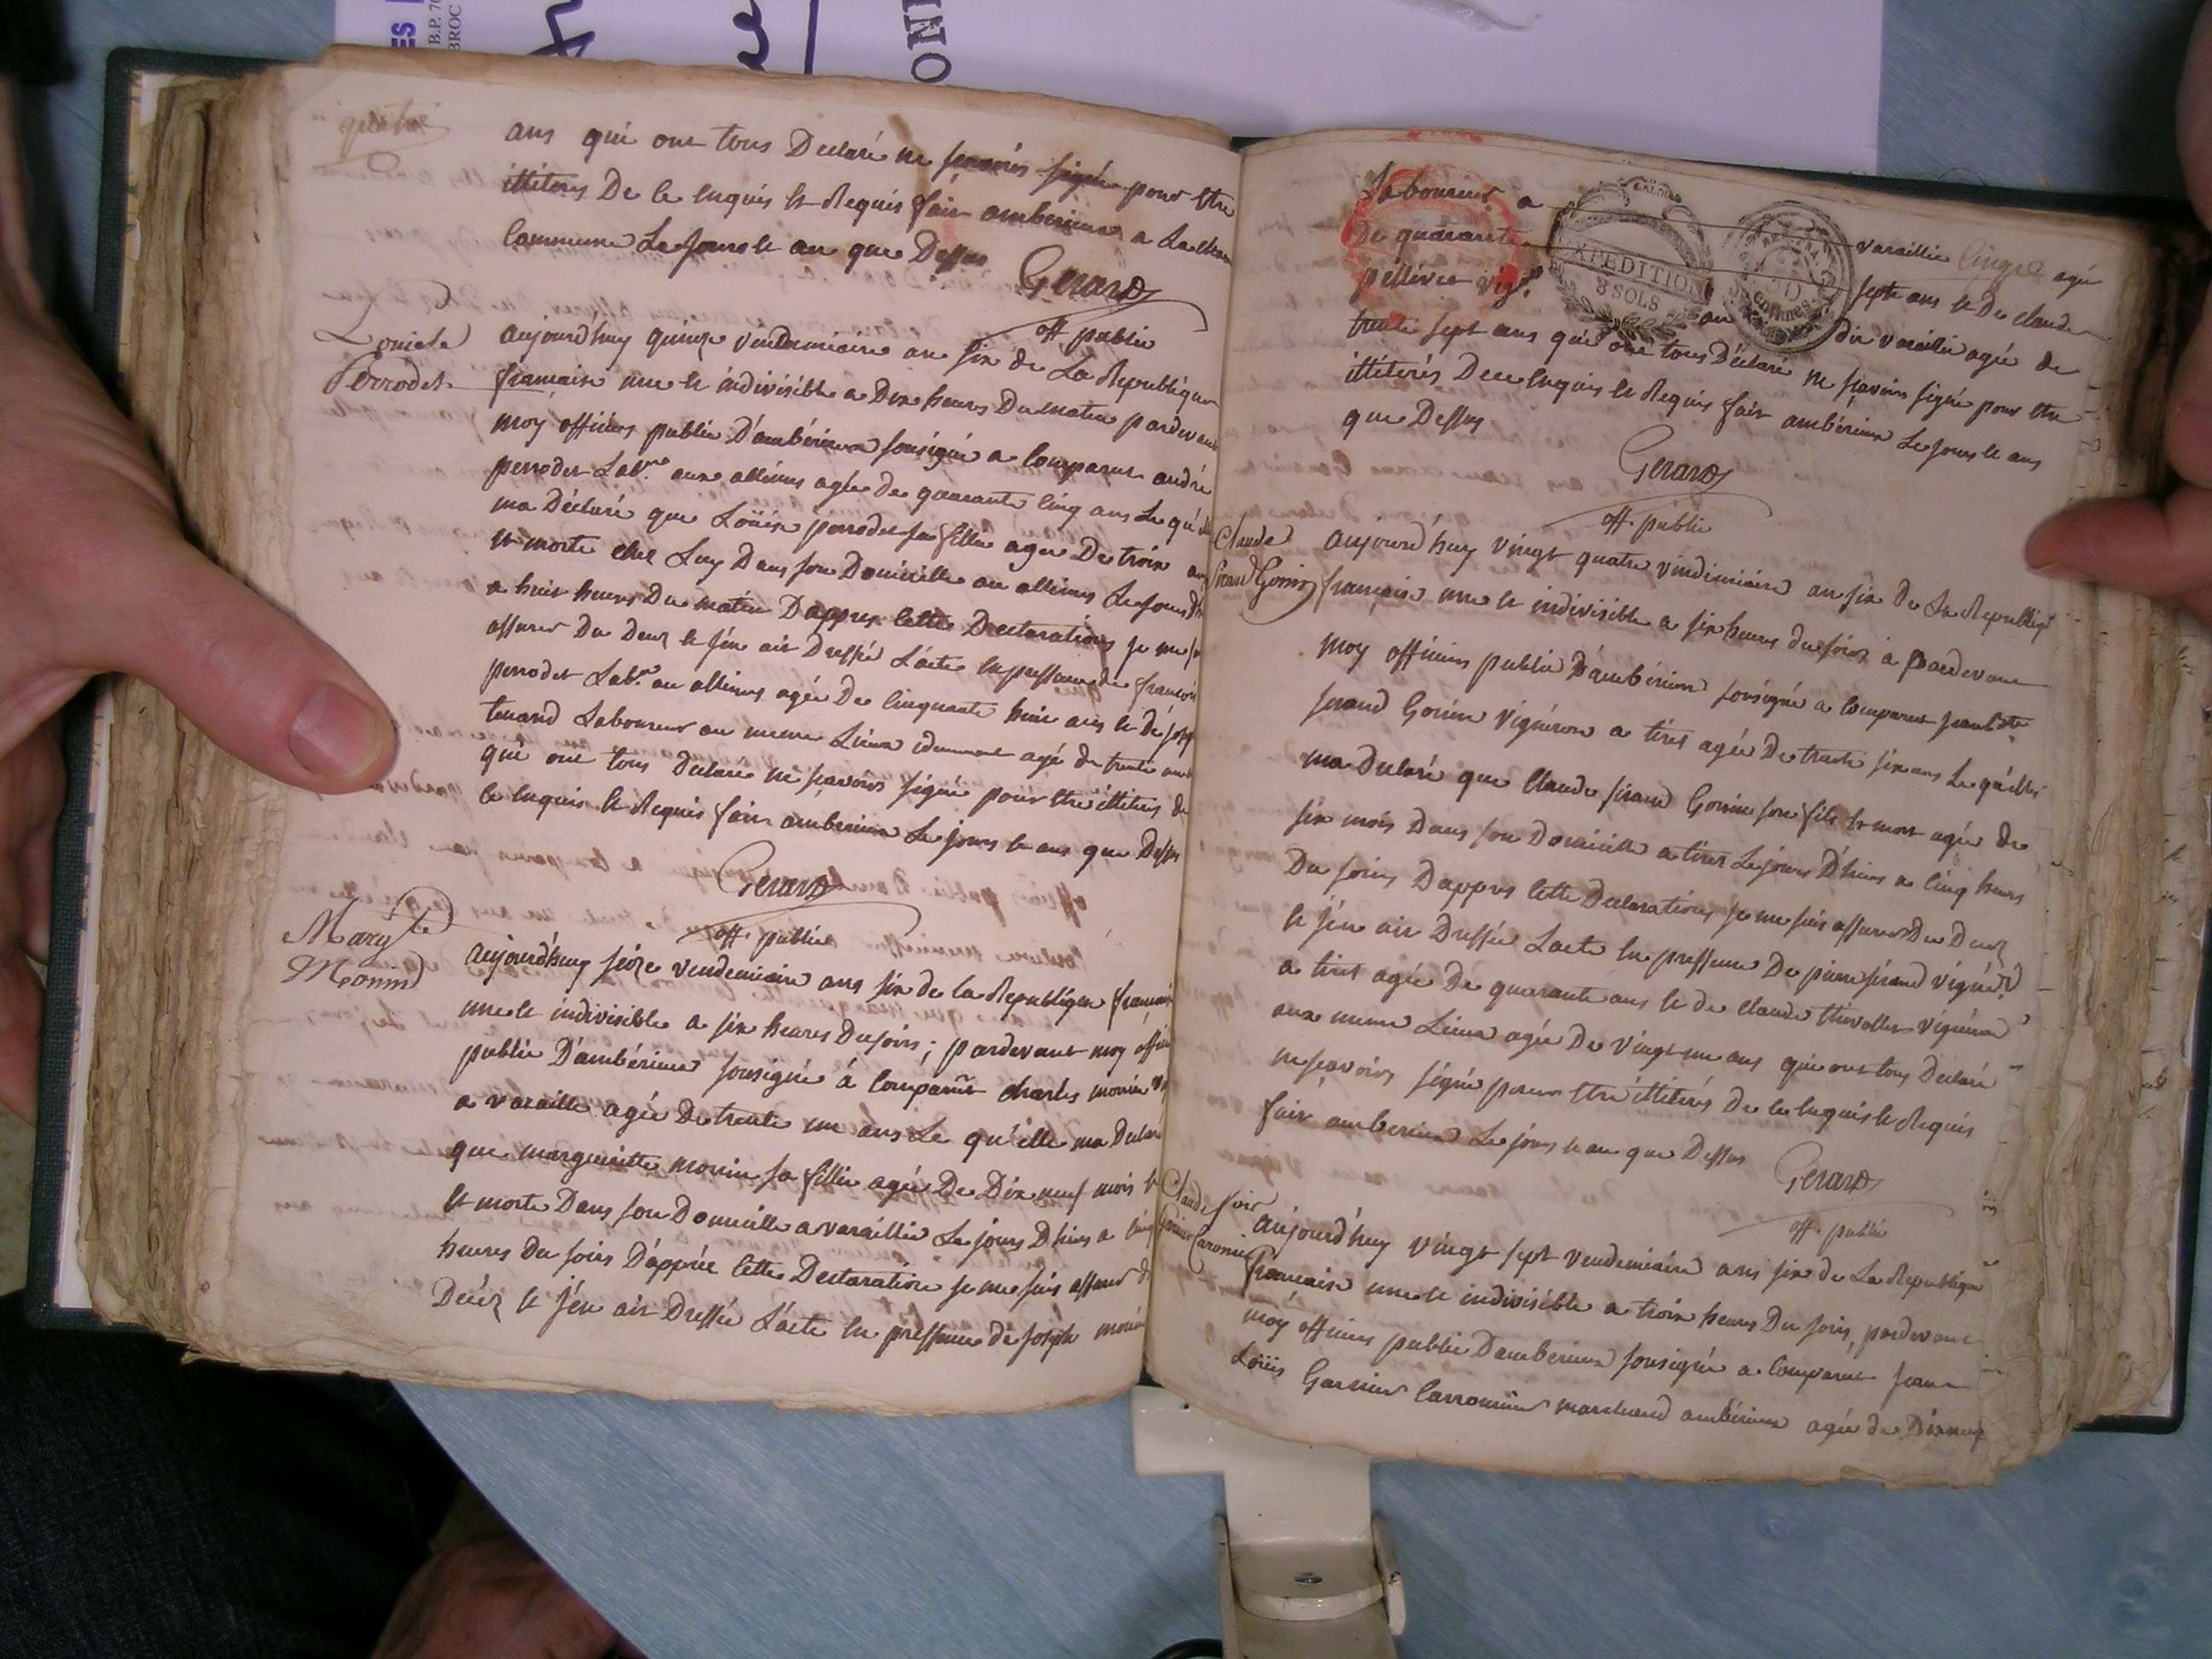 ES
B.P. 70
BROC
ONI
quatre
ans qui ont tous Declaré ne scavoir signé pour etre
illiteres De ce enquis et Requis fait amberieux a La
Commune Le Jours et an que Dessus
Gerard
off public
Louise
Perrodet
aujourd'huy quinze vendemiaire an six de La Republique
francaise une et indivisible a Dix heures Du matin pardevant
moy officiers public D'ambérieux sousigné a Comparut andré
perrodet Labr. aux allimes agée de quarante cinq ans Le qu'elle
ma Déclaré que Loüise perrodet sa fille agée De trois ans
et morte chez Luy Dans son Domicille au allimes Le jours D'h
a huit heures Du matin Dappres cette Declarations je me s
assurer Du Decez et j'en ait Dressé L'acte en pressence de francois
perrodet Labr. au allimes agée De cinquante huit ans et De jos
tenand Laboureur au meme Lieux idemment agé de trente
qui ont tous Declaré ne scavoirs signée pour etre illiteres de
ce enquis et Requis fait amberieux Le jours et ans que Dessus
Gerard
off public
Margte
Monin
aujourd'huy seize vendemiaire ans six de la Republique francais
une et indivisible a six heures Du soirs ; pardevant moy offici
public D'ambérieux sousignée á Comparut charles monin
a varaille agée De trente un ans Le qu'elle ma Declaré
que marguerite monin sa fille agée De Dix neuf mois
et morte Dans son Domicille a varaillie Le jours D'hier a cinq
heures Du soirs D'apprée cette Declaration je me suis assurer d
Decéz et j'en ait Dressée L'acte en pressence de joseph monin
Laboureur a varaillie agée
De quarante sept ans et De claude
pellivier au dit varaillie agée de
EXPEDITION
3 SOLS
trente sept ans qui ont tous Déclaré ne scavoirs signé pour etre
illitérés De ce enquis et Requis fait ambérieux Le jours et ans
que Dessus
Gerard
off public
Claude
Sirand Gonin
aujourd'huy vingt quatre vindemiaire an six De La Republiq
francaise une et indivisible a six heures du soirs à pardevant
moy officiers public D'ambérieux sousigné a Comparut jean bte
sirand Gonin vigneron a tiret agée De trente six ans Le quelles
ma Declaré que Claude sirand Gonin son fils et mort agée de
six mois Dans son Domicille a tiret Le jours D'hiers a cinq heurs
Du soirs Dappres cette Declarations je me suis assurer Du Decez
et j'en ait Dressée Lacte en pressence De pierre sirand vigner
a tiret agée De quarante ans et de claude thevollet vigneron
aux meme Lieux agée De vingt un ans qui ont tous Declaré
ne scavoirs signé pour etre illitérés de ce enquis et Requis
fait amberieux Le jours et an que Dessus
Gerard
off public
Claude
Garnier Carronier
aujourd'huy vingt sept vendemiaire ans six de La Republique
francaise une et indivisible a trois heures Du soirs pardevant
moy officiers public D'amberieux sousignée a Comparut jean
Loüis Garnier Carronnier marchand ambérieux agée de Dix neuf